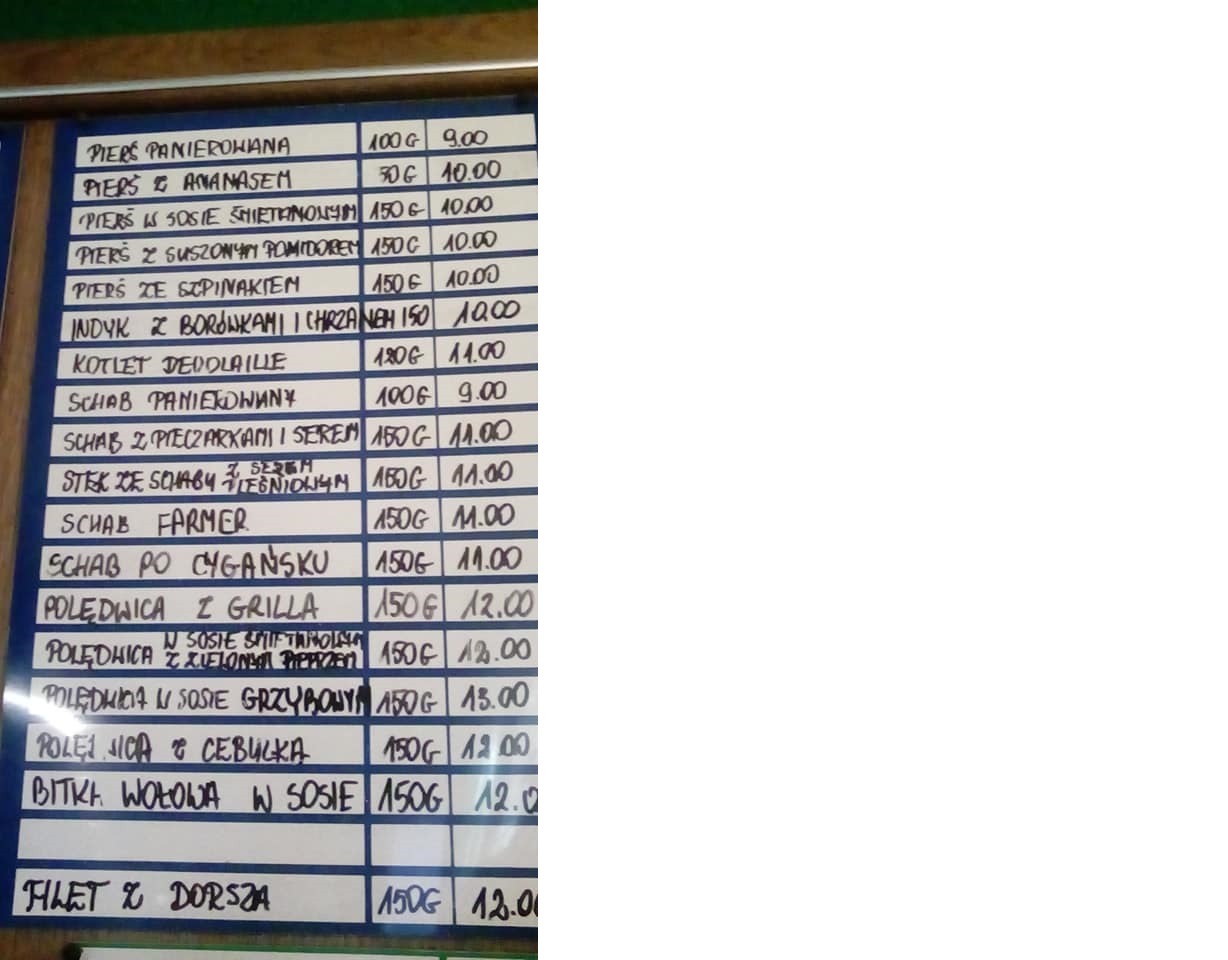 PIERŚ PANIEROWANA 100G 9.00
PIERŚ Z ANANASEM 50G 10.00
PIERŚ W SOSIE ŚMIETANOWYM 150G 10.00
PIERŚ Z SUSZONYM POMIDOREM 150G 10.00
PIERŚ ZE SZPINAKIEM 150G 10.00
INDYK Z BORÓWKAMI I CHRZANEM 150 10.00
KOTLET DEVOLAILLE 120G 11.00
SCHAB PANIEROWANY 100G 9.00
SCHAB Z PIECZARKAMI I SEREM 150G 11.00
STEK ZE SCHABU Z SEREM PLEŚNIOWYM 150G 11.00
SCHAB FARMER 150G 11.00
SCHAB PO CYGAŃSKU 150G 11.00
POLĘDWICA Z GRILLA 150G 12.00
POLĘDWICA W SOSIE ŚMIETANOWYM Z ZIELONYM PIEPRZEM 150G 12.00
POLĘDWICA W SOSIE GRZYBOWYM 150G 13.00
POLĘDWICA Z CEBULKĄ 150G 12.00
BITKA WOŁOWA W SOSIE 150G 12.0
FILET Z DORSZA 150G 12.00